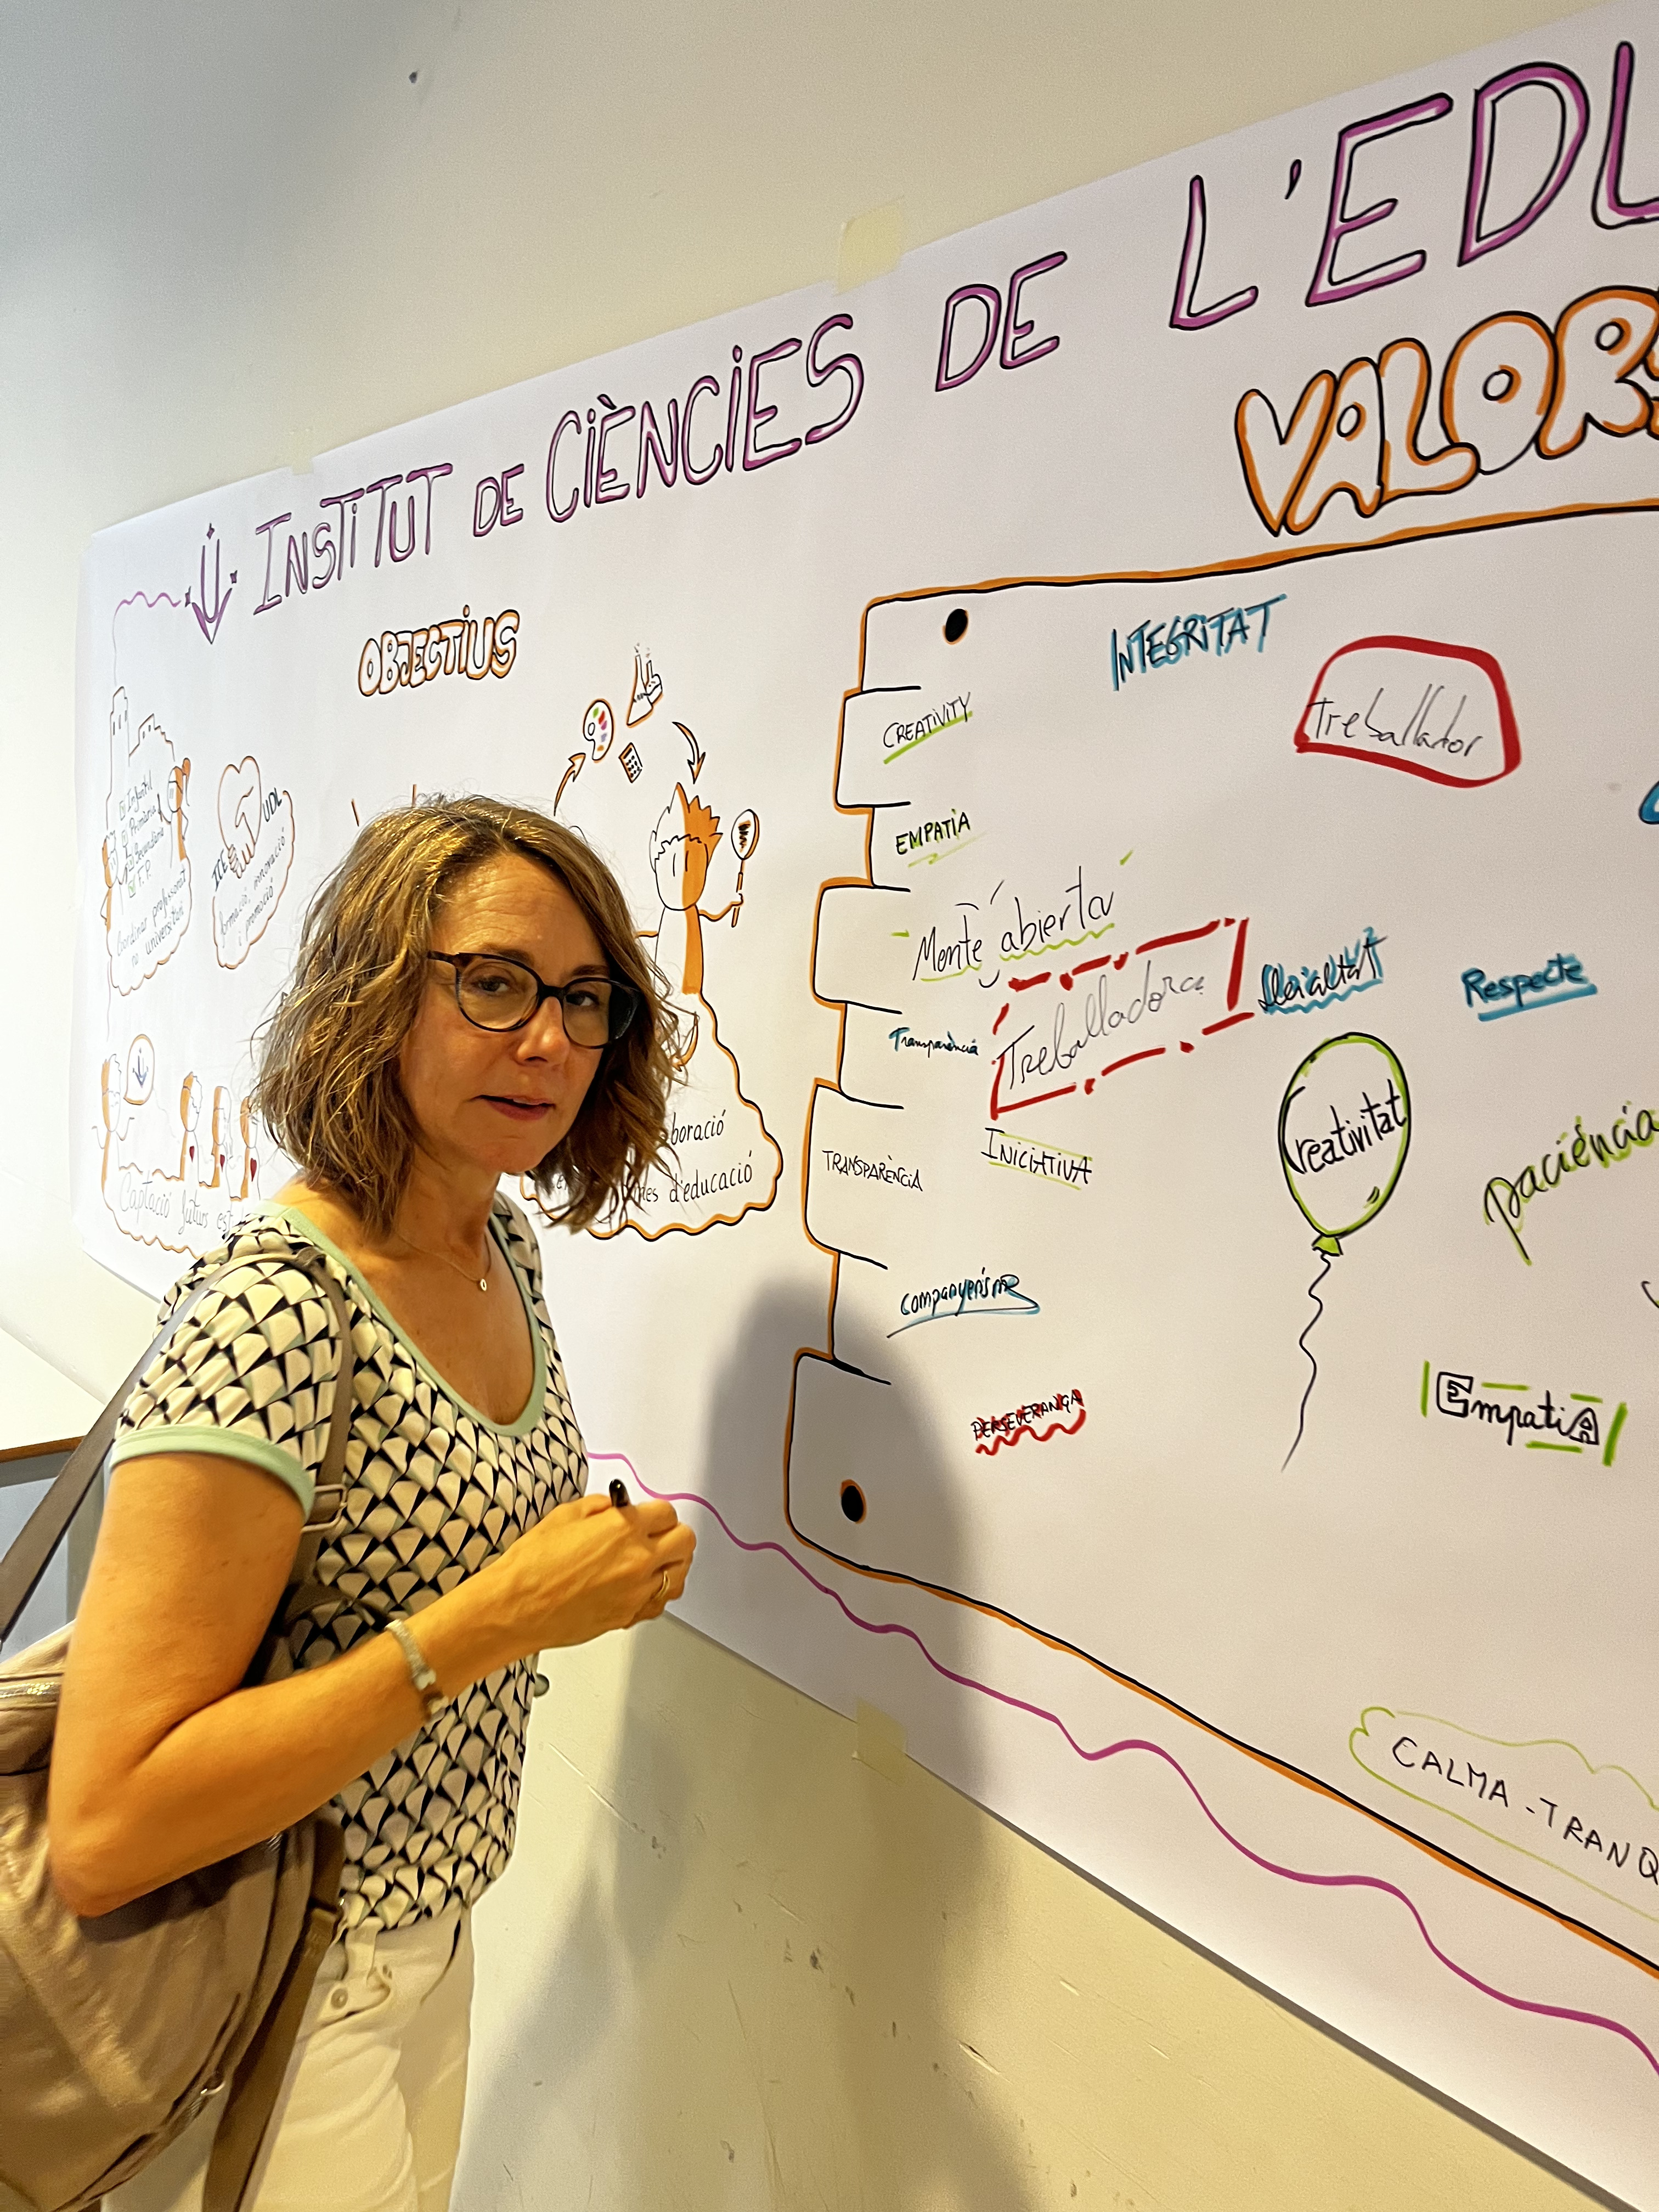 INSTITUT DE CIÈNCIES DE L'EDU
OBJECTIUS
VALORS
Infantil
Primària
Secundària
F.P.
Coordinar professorat
no universitari
ICE
UDL
formació, innovació
i promoció
Captació futurs est
boració
d'educació
INTEGRITAT
Treballador
CREATIVITY
EMPATIA
Mente abierta
Treballadora
Lleialtat
Respecte
Transparència
INICIATIVA
TRANSPARÈNCIA
Creativitat
paciència
companyerisme
PERSEVERANÇA
EmpatiA
CALMA - TRANQ